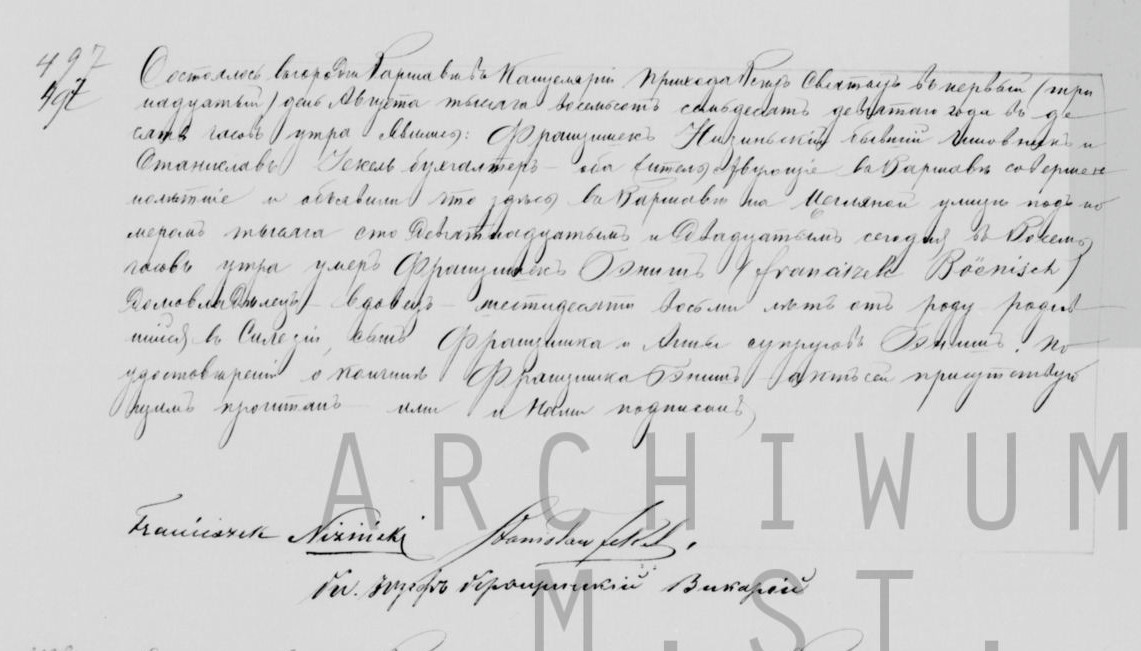 497
497
Состоялось въ городѣ Варшавѣ въ Канцеляріи Прихода Всѣхъ Святыхъ въ первый /три
надцатый/ день Августа тысяча восемьсотъ семьдесятъ девятаго года въ де
сять часовъ утра Явились: Францишекъ Низинскій бывшій чиновникъ и
Станиславъ Іекель бухгалтеръ оба жительствующіе въ Варшавѣ совершен
нолѣтніе и объявили что здѣсь въ Варшавѣ на улицѣ подъ но
меромъ тысяча сто Девятнадцатымъ и Двадцатымъ сегодня въ Восемь
часовъ утра умеръ Францишекъ Бэнишъ /Franciszek Böenisch/
Домовладѣлецъ вдовецъ шестидесяти восьми лѣтъ отъ роду родив
шійся въ Силезіи, сынъ Францишка и Анны супруговъ Бэнишъ. По
удостовѣреніи о кончинѣ Францишка Бэнишъ актъ сей присутствую
щимъ прочитанъ ими и Нами подписанъ
Franciszek Niziński Stanisław Jekel.
Кс. Іозефъ Викарій
ARCHIWUM
M. ST.